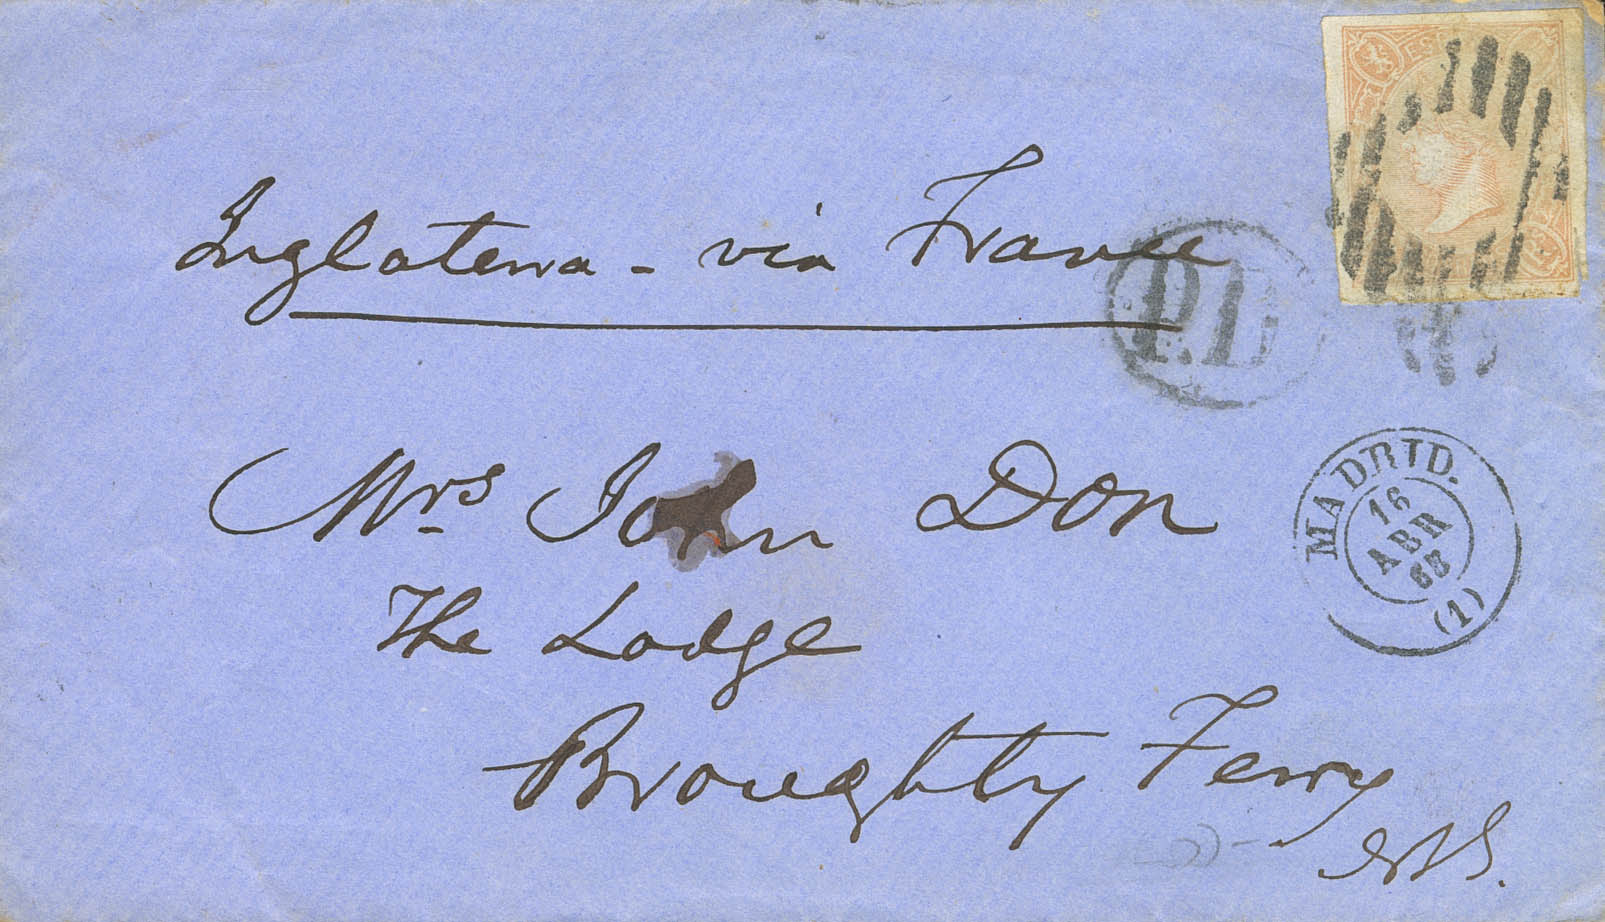 Inglaterra - via France
P.D
Mrs John Don
The Lodge
Broughty Ferry
N.B.
MADRID.
16
ABR
65
(1)